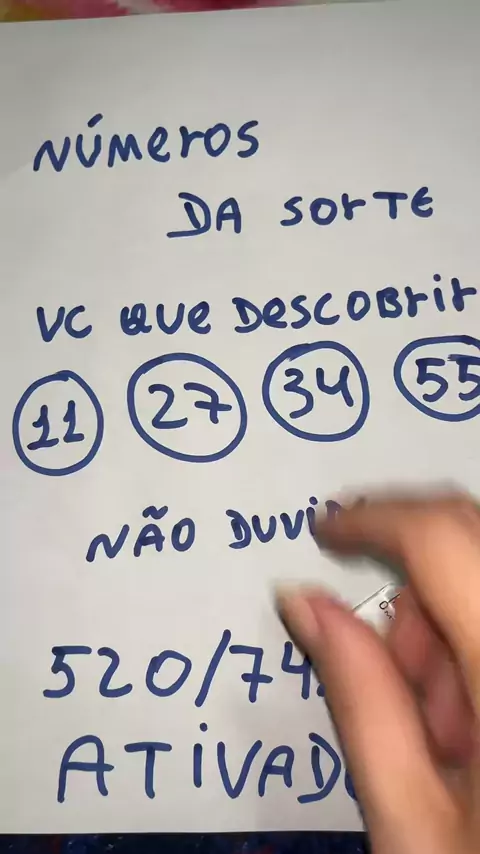 NÚMEROS
DA SORTE
VC QUE DESCOBRIR
11 27 34 55
NÃO
520/74